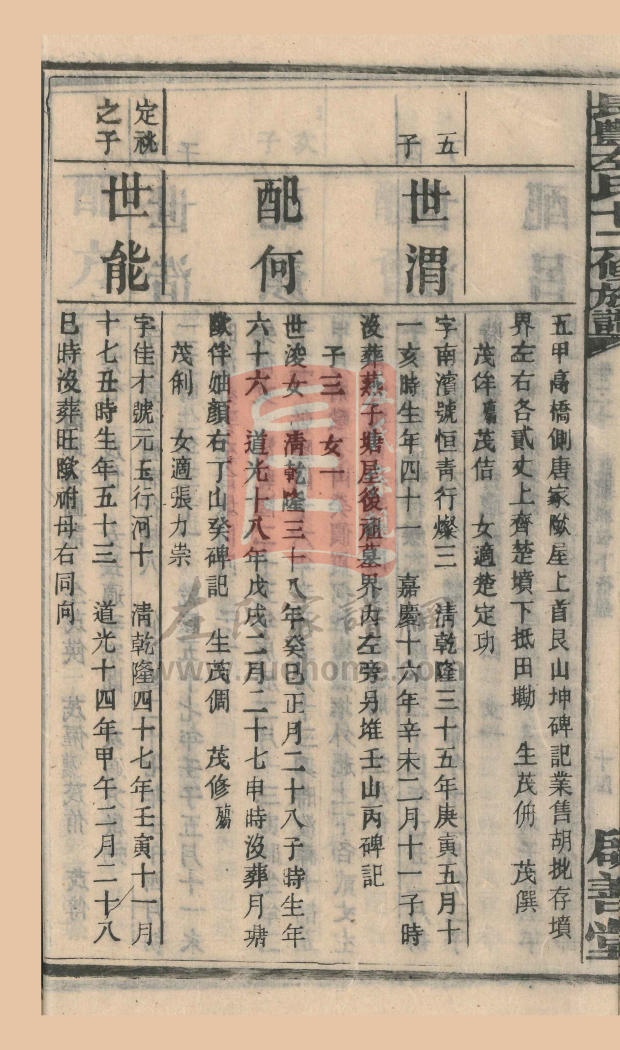 五甲高橋側唐家歐屋上首艮山坤碑記業售胡批存墳
界左右各貳丈上齊楚墳下抵田墈 生茂侀 茂僎
茂侔殤茂佶 女適楚定功
五子
世渭
字南濱號恒青行燦三 清乾隆三十五年庚寅五月十
一亥時生年四十一 嘉慶十六年辛未二月十一子時
沒葬燕子塘屋後祖墓界內左旁另堆壬山丙碑記
子三 女一
配何
世浚女 清乾隆三十八年癸巳正月二十八子時生年
六十六 道光十八年戊戌二月二十七申時沒葬月塘
歐伴妯顏右丁山癸碑記 生茂倜 茂修殤
茂俐 女適張力崇
定祧之子
世能
字佳才號元玉行河十 清乾隆四十七年壬寅十一月
十七丑時生年五十三 道光十四年甲午二月二十八
巳時沒葬旺歐祔母右同向
長豐左氏十二修族譜
啟善堂
左氏家譜網
www.zuohome.com